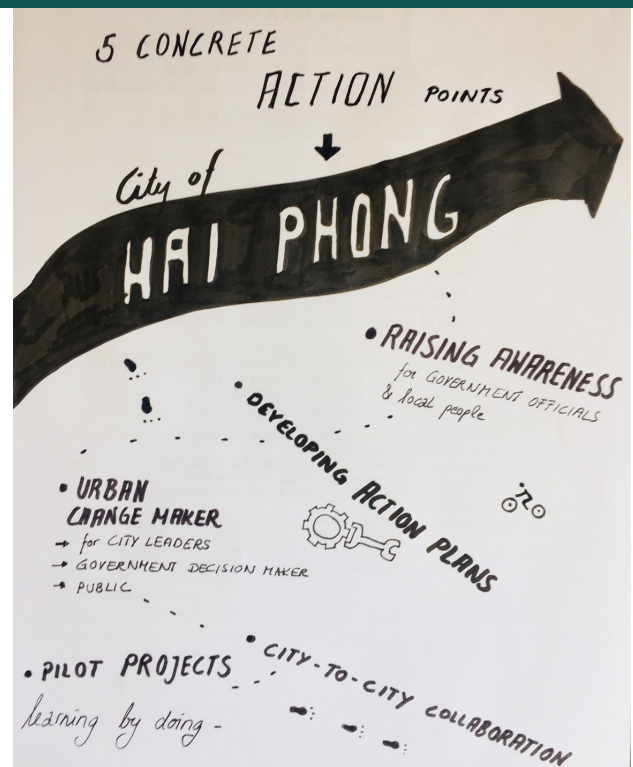 5 CONCRETE
ACTION POINTS
City of
HAI PHONG
• RAISING AWARENESS
for GOVERNMENT OFFICIALS
& local people
• DEVELOPING ACTION PLANS
• URBAN
CHANGE MAKER
→ for CITY LEADERS
→ GOVERNMENT DECISION MAKER
→ PUBLIC
• CITY-TO-CITY COLLABORATION
• PILOT PROJECTS
learning by doing -